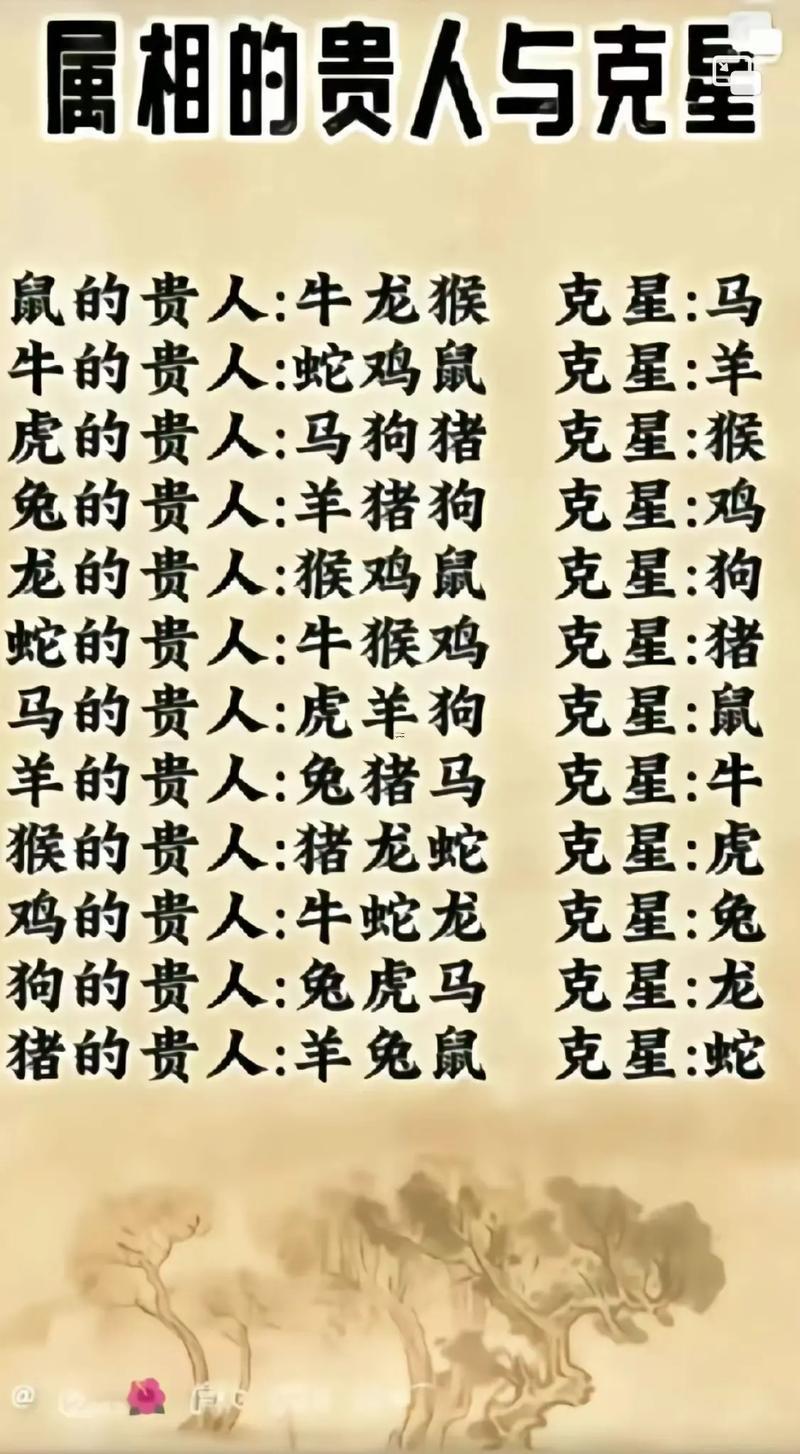 属相的贵人与克星
鼠的贵人:牛龙猴 克星:马
牛的贵人:蛇鸡鼠 克星:羊
虎的贵人:马狗猪 克星:猴
兔的贵人:羊猪狗 克星:鸡
龙的贵人:猴鸡鼠 克星:狗
蛇的贵人:牛猴鸡 克星:猪
马的贵人:虎羊狗 克星:鼠
羊的贵人:兔猪马 克星:牛
猴的贵人:猪龙蛇 克星:虎
鸡的贵人:牛蛇龙 克星:兔
狗的贵人:兔虎马 克星:龙
猪的贵人:羊兔鼠 克星:蛇
@